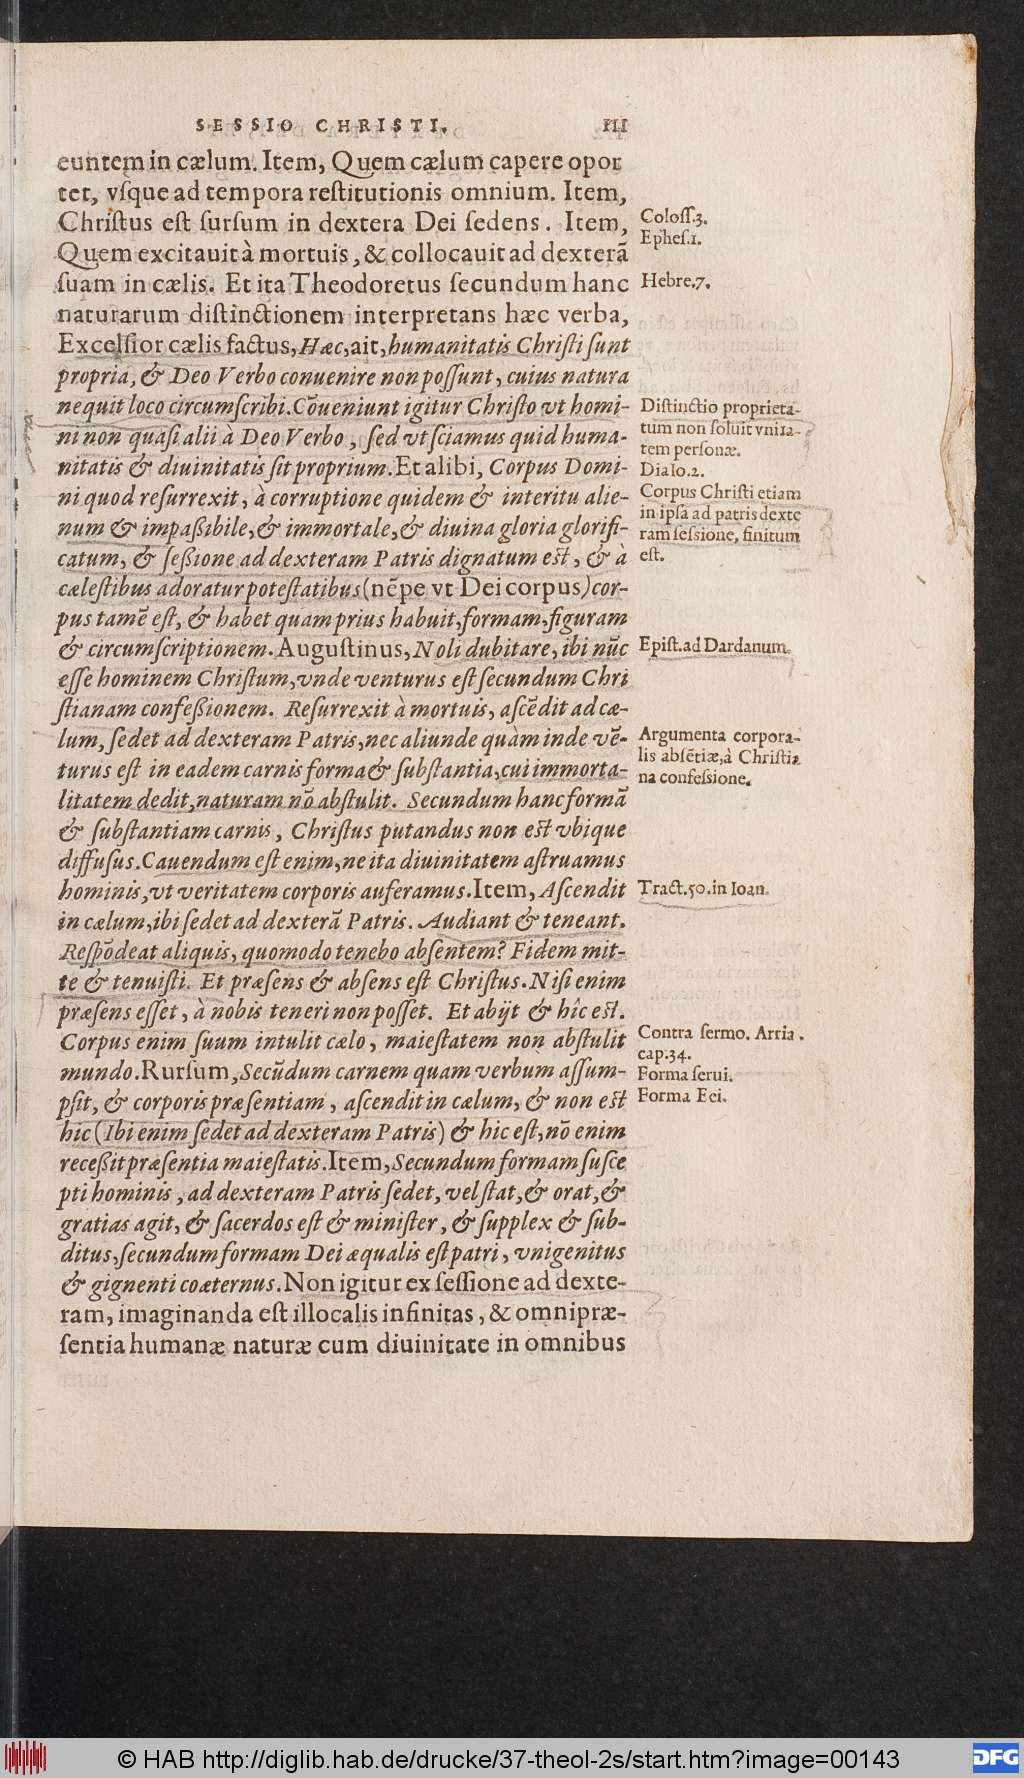 SESSIO CHRISTI. III
euntem in cælum. Item, Quem cælum capere opor
tet, vſque ad tempora reſtitutionis omnium. Item,
Chriſtus eſt ſurſum in dextera Dei ſedens. Item,
Coloſſ.3.
Quem excitauit à mortuis, & collocauit ad dexterã
Epheſ.1.
ſuam in cælis. Et ita Theodoretus ſecundum hanc
Hebre.7.
naturarum diſtinctionem interpretans hæc verba,
Excelſior cælis factus, Hæc, ait, humanitatis Chriſti ſunt
propria, & Deo Verbo conuenire non poſſunt, cuius natura
nequit loco circumſcribi. Cōueniunt igitur Chriſto vt homi-
Diſtinctio proprieta-
ni non quaſi alii à Deo Verbo, ſed vt ſciamus quid huma-
tum non ſoluit vnita-
tem perſonæ.
nitatis & diuinitatis ſit proprium. Et alibi, Corpus Domi-
Dialo.2.
ni quod reſurrexit, à corruptione quidem & interitu alie-
Corpus Chriſti etiam
num & impaßibile, & immortale, & diuina gloria glorifi-
in ipſa ad patris dexte
ram ſeſsione, finitum
catum, & ſeßione ad dexteram Patris dignatum eſt, & à
eſt.
cæleſtibus adoratur poteſtatibus (nẽpe vt Dei corpus) cor-
pus tamẽ eſt, & habet quam prius habuit, formam, figuram
& circumſcriptionem. Auguſtinus, Noli dubitare, ibi nũc
Epiſt. ad Dardanum.
eſſe hominem Chriſtum, vnde venturus eſt ſecundum Chri
ſtianam confeßionem. Reſurrexit à mortuis, aſcẽdit ad cæ-
lum, ſedet ad dexteram Patris, nec aliunde quàm inde vẽ-
Argumenta corpora-
lis abſẽtiæ, à Chriſtia
turus eſt in eadem carnis forma & ſubſtantia, cui immorta-
na confeſsione.
litatem dedit, naturam nō abſtulit. Secundum hanc formã
& ſubſtantiam carnis, Chriſtus putandus non eſt vbique
diffuſus. Cauendum eſt enim, ne ita diuinitatem aſtruamus
hominis, vt veritatem corporis auferamus. Item, Aſcendit
Tract.50. in Ioan.
in cælum, ibi ſedet ad dexterã Patris. Audiant & teneant.
Reſpōdeat aliquis, quomodo tenebo abſentem? Fidem mit-
te & tenuiſti. Et præſens & abſens eſt Chriſtus. Niſi enim
præſens eſſet, à nobis teneri non poſſet. Et abijt & hîc eſt.
Corpus enim ſuum intulit cælo, maieſtatem non abſtulit
Contra ſermo. Arria.
cap.34.
mundo. Rurſum, Secũdum carnem quam verbum aſſum-
Forma ſerui.
pſit, & corporis præſentiam, aſcendit in cælum, & non eſt
Forma Eei.
hic (Ibi enim ſedet ad dexteram Patris) & hic eſt, nō enim
receßit præſentia maieſtatis. Item, Secundum formam ſuſce
pti hominis, ad dexteram Patris ſedet, vel ſtat, & orat, &
gratias agit, & ſacerdos eſt & miniſter, & ſupplex & ſub-
ditus, ſecundum formam Dei æqualis eſt patri, vnigenitus
& gignenti coæternus. Non igitur ex ſeſſione ad dexte-
ram, imaginanda eſt illocalis infinitas, & omnipræ-
ſentia humanæ naturæ cum diuinitate in omnibus
© HAB http://diglib.hab.de/drucke/37-theol-2s/start.htm?image=00143
DFG